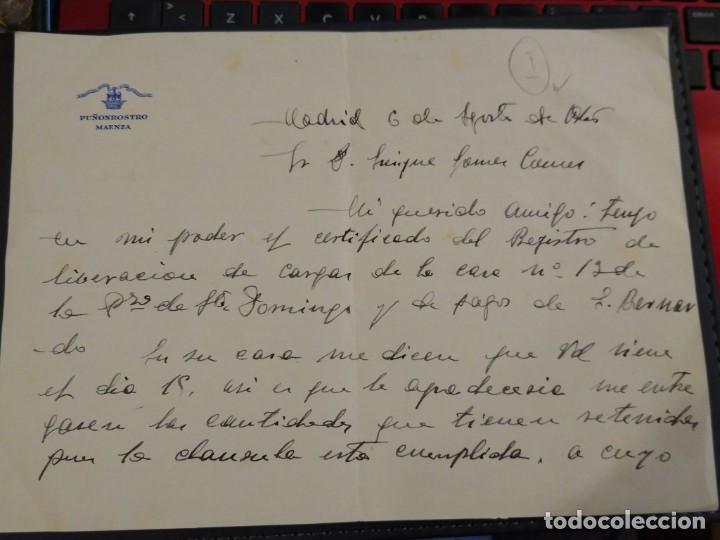 I
PUÑONROSTRO
MAENZA
Madrid 6 de Agosto de
Sr D. Enrique Gomez Comes
Mi querido amigo: Tengo
en mi poder el certificado del Registro de
liberacion de cargas de la casa nº 12 de
la Pza de Sto Domingo y de pagos de S. Bernar
-do En su casa me dicen que Vd viene
el dia 15, asi es que le agradeceria me entre
gasen las cantidades que tienen retenidas
pues la clausula esta cumplida, a cuyo
todocoleccion.net